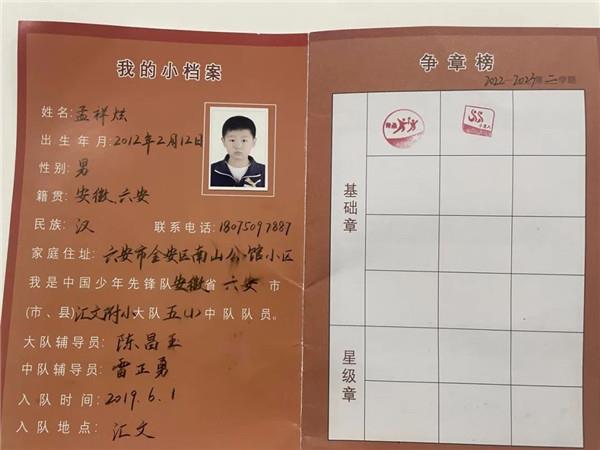 我的小档案
姓名:孟祥炫
出生年月:2012年2月12日
性别:男
籍贯:安徽六安
民族:汉 联系电话:18075097887
家庭住址:六安市金安区南山公馆小区
我是中国少年先锋队安徽省六安市
(市、县)汇文附小大队五(1)中队队员。
大队辅导员:陈昌玉
中队辅导员:雷正勇
入队时间:2019.6.1
入队地点:汇文
争章榜
2022—2023第二学期
基础章
星级章